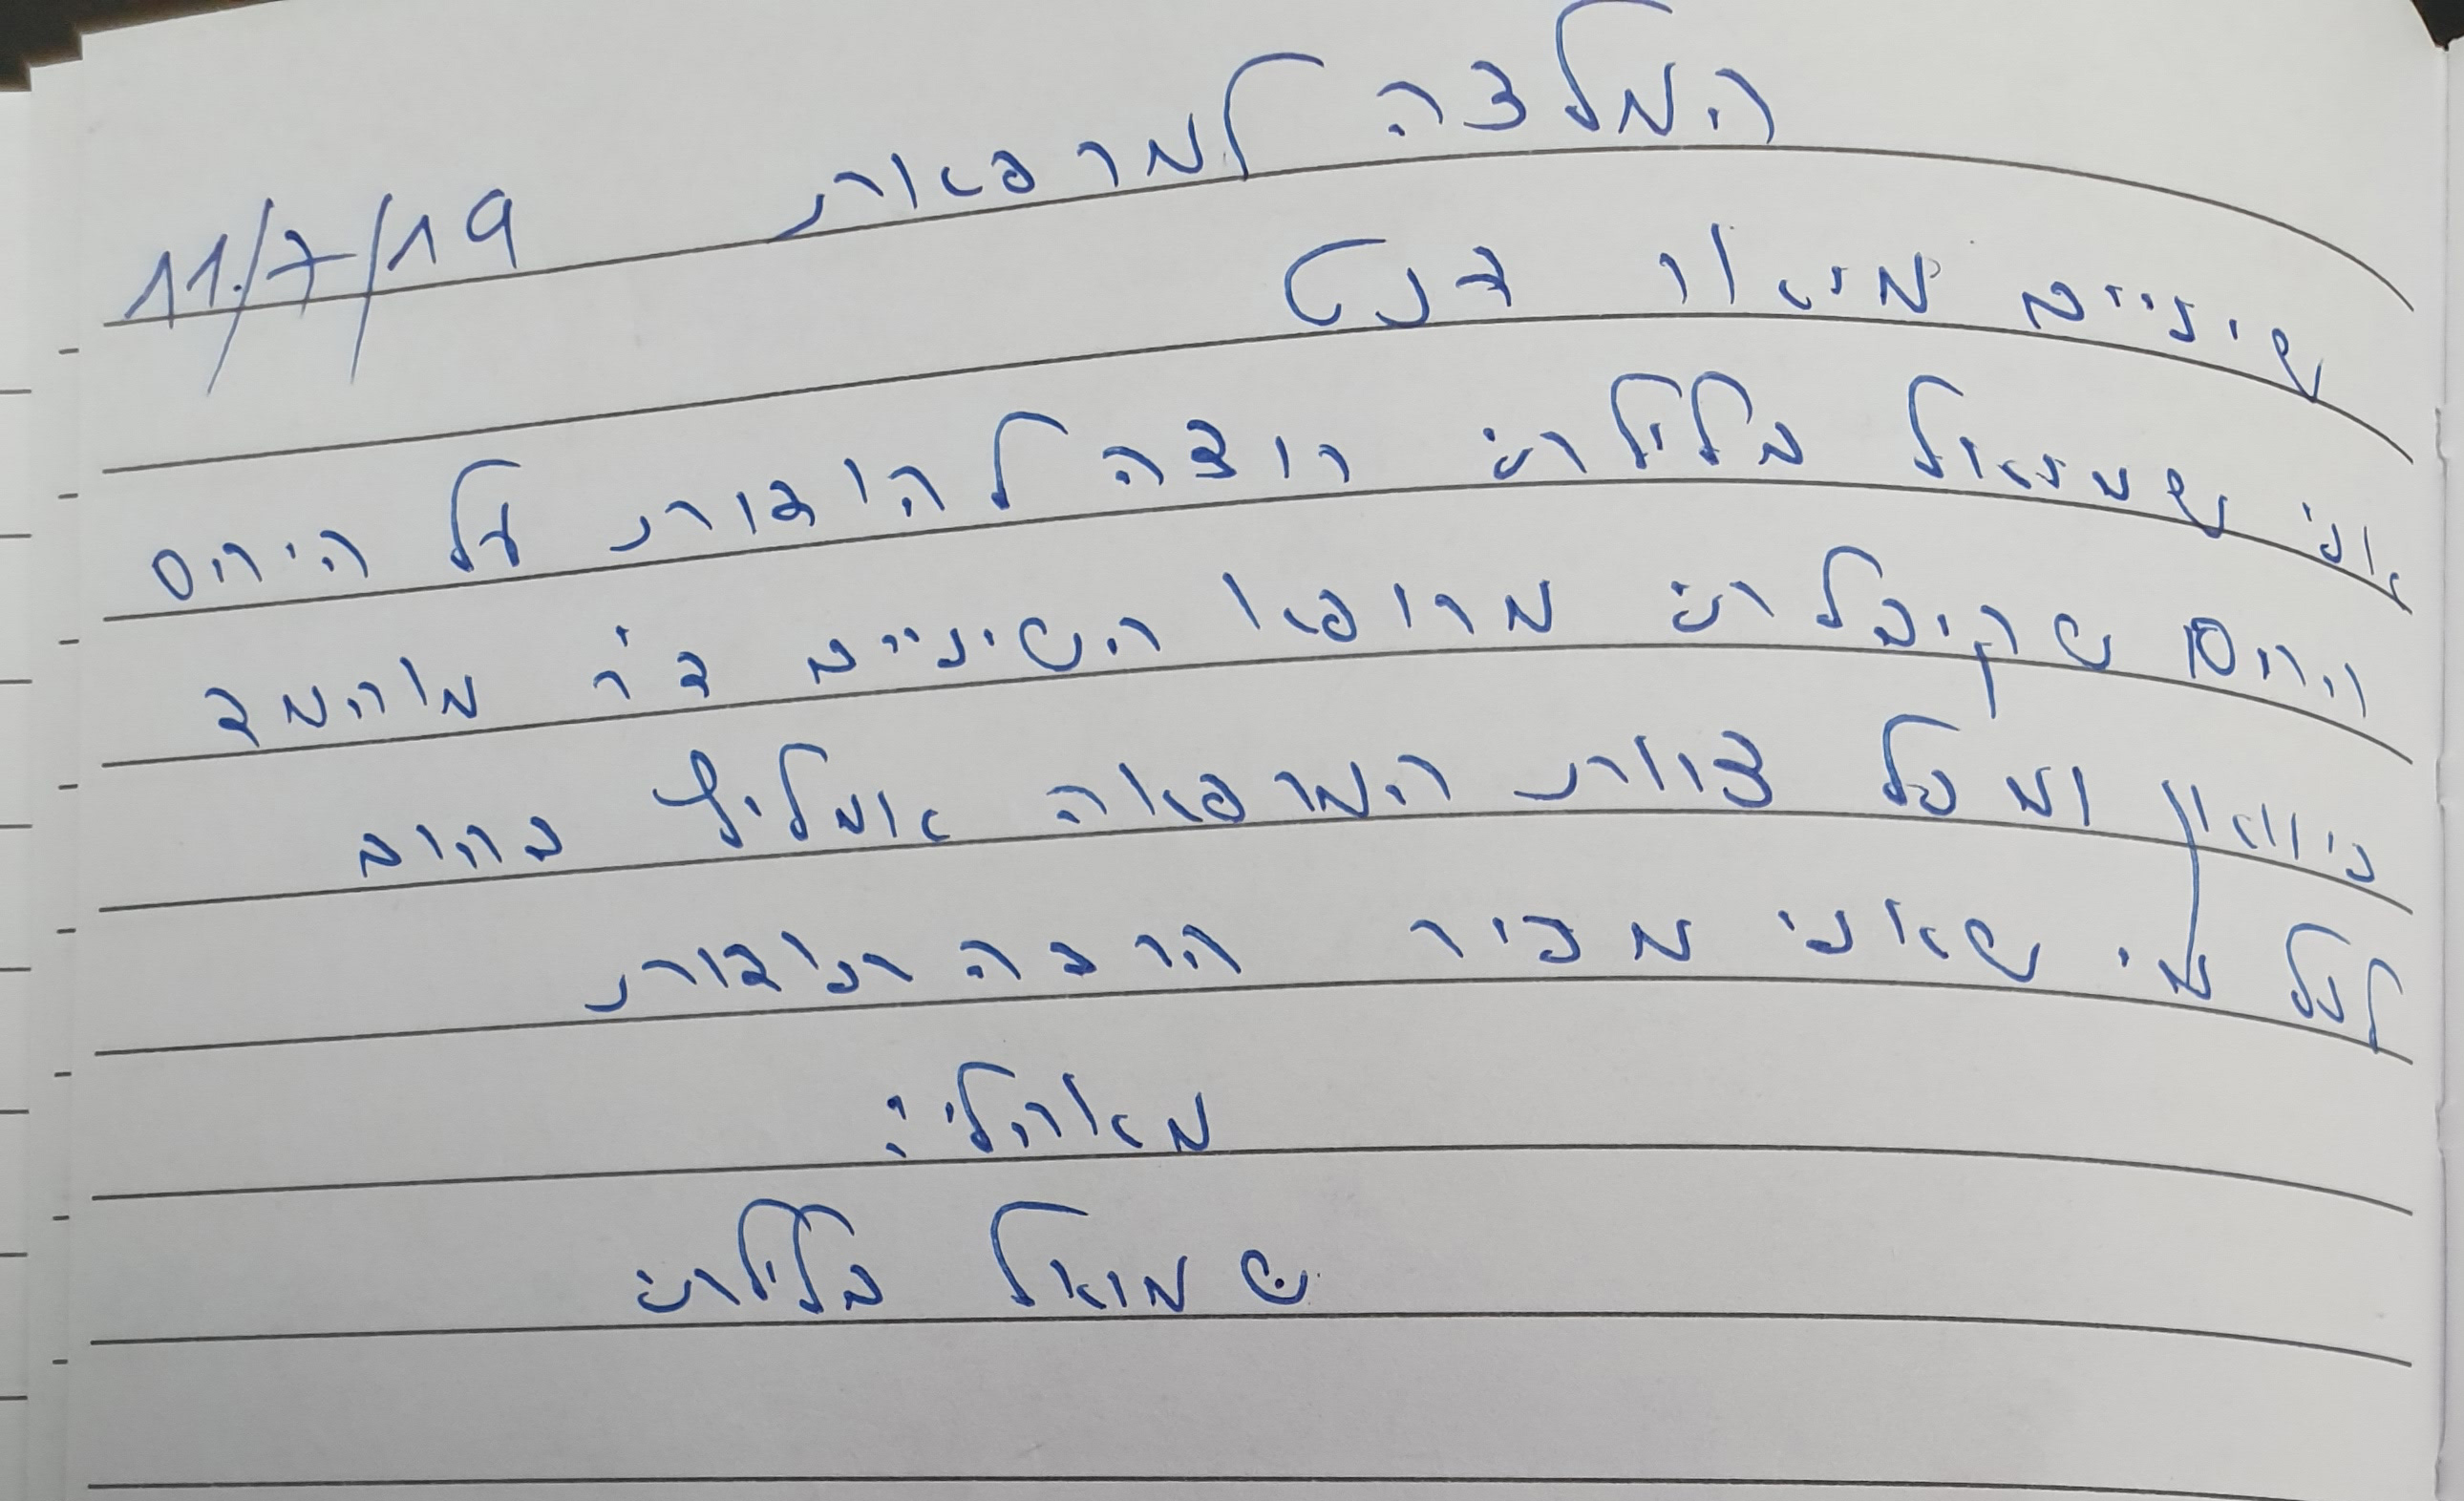 המלצה למרפאת
11/7/19
שיניים מיאו דנט
אני שמואל מלילות רוצה להודות על היחס
החם שקיבלתי מרופא השיניים ד"ר מוחמד
ומכל צוות המרפאה אמליץ בחום
לכל מי שאני מכיר הרבה תודות
מאחלי:
שמואל